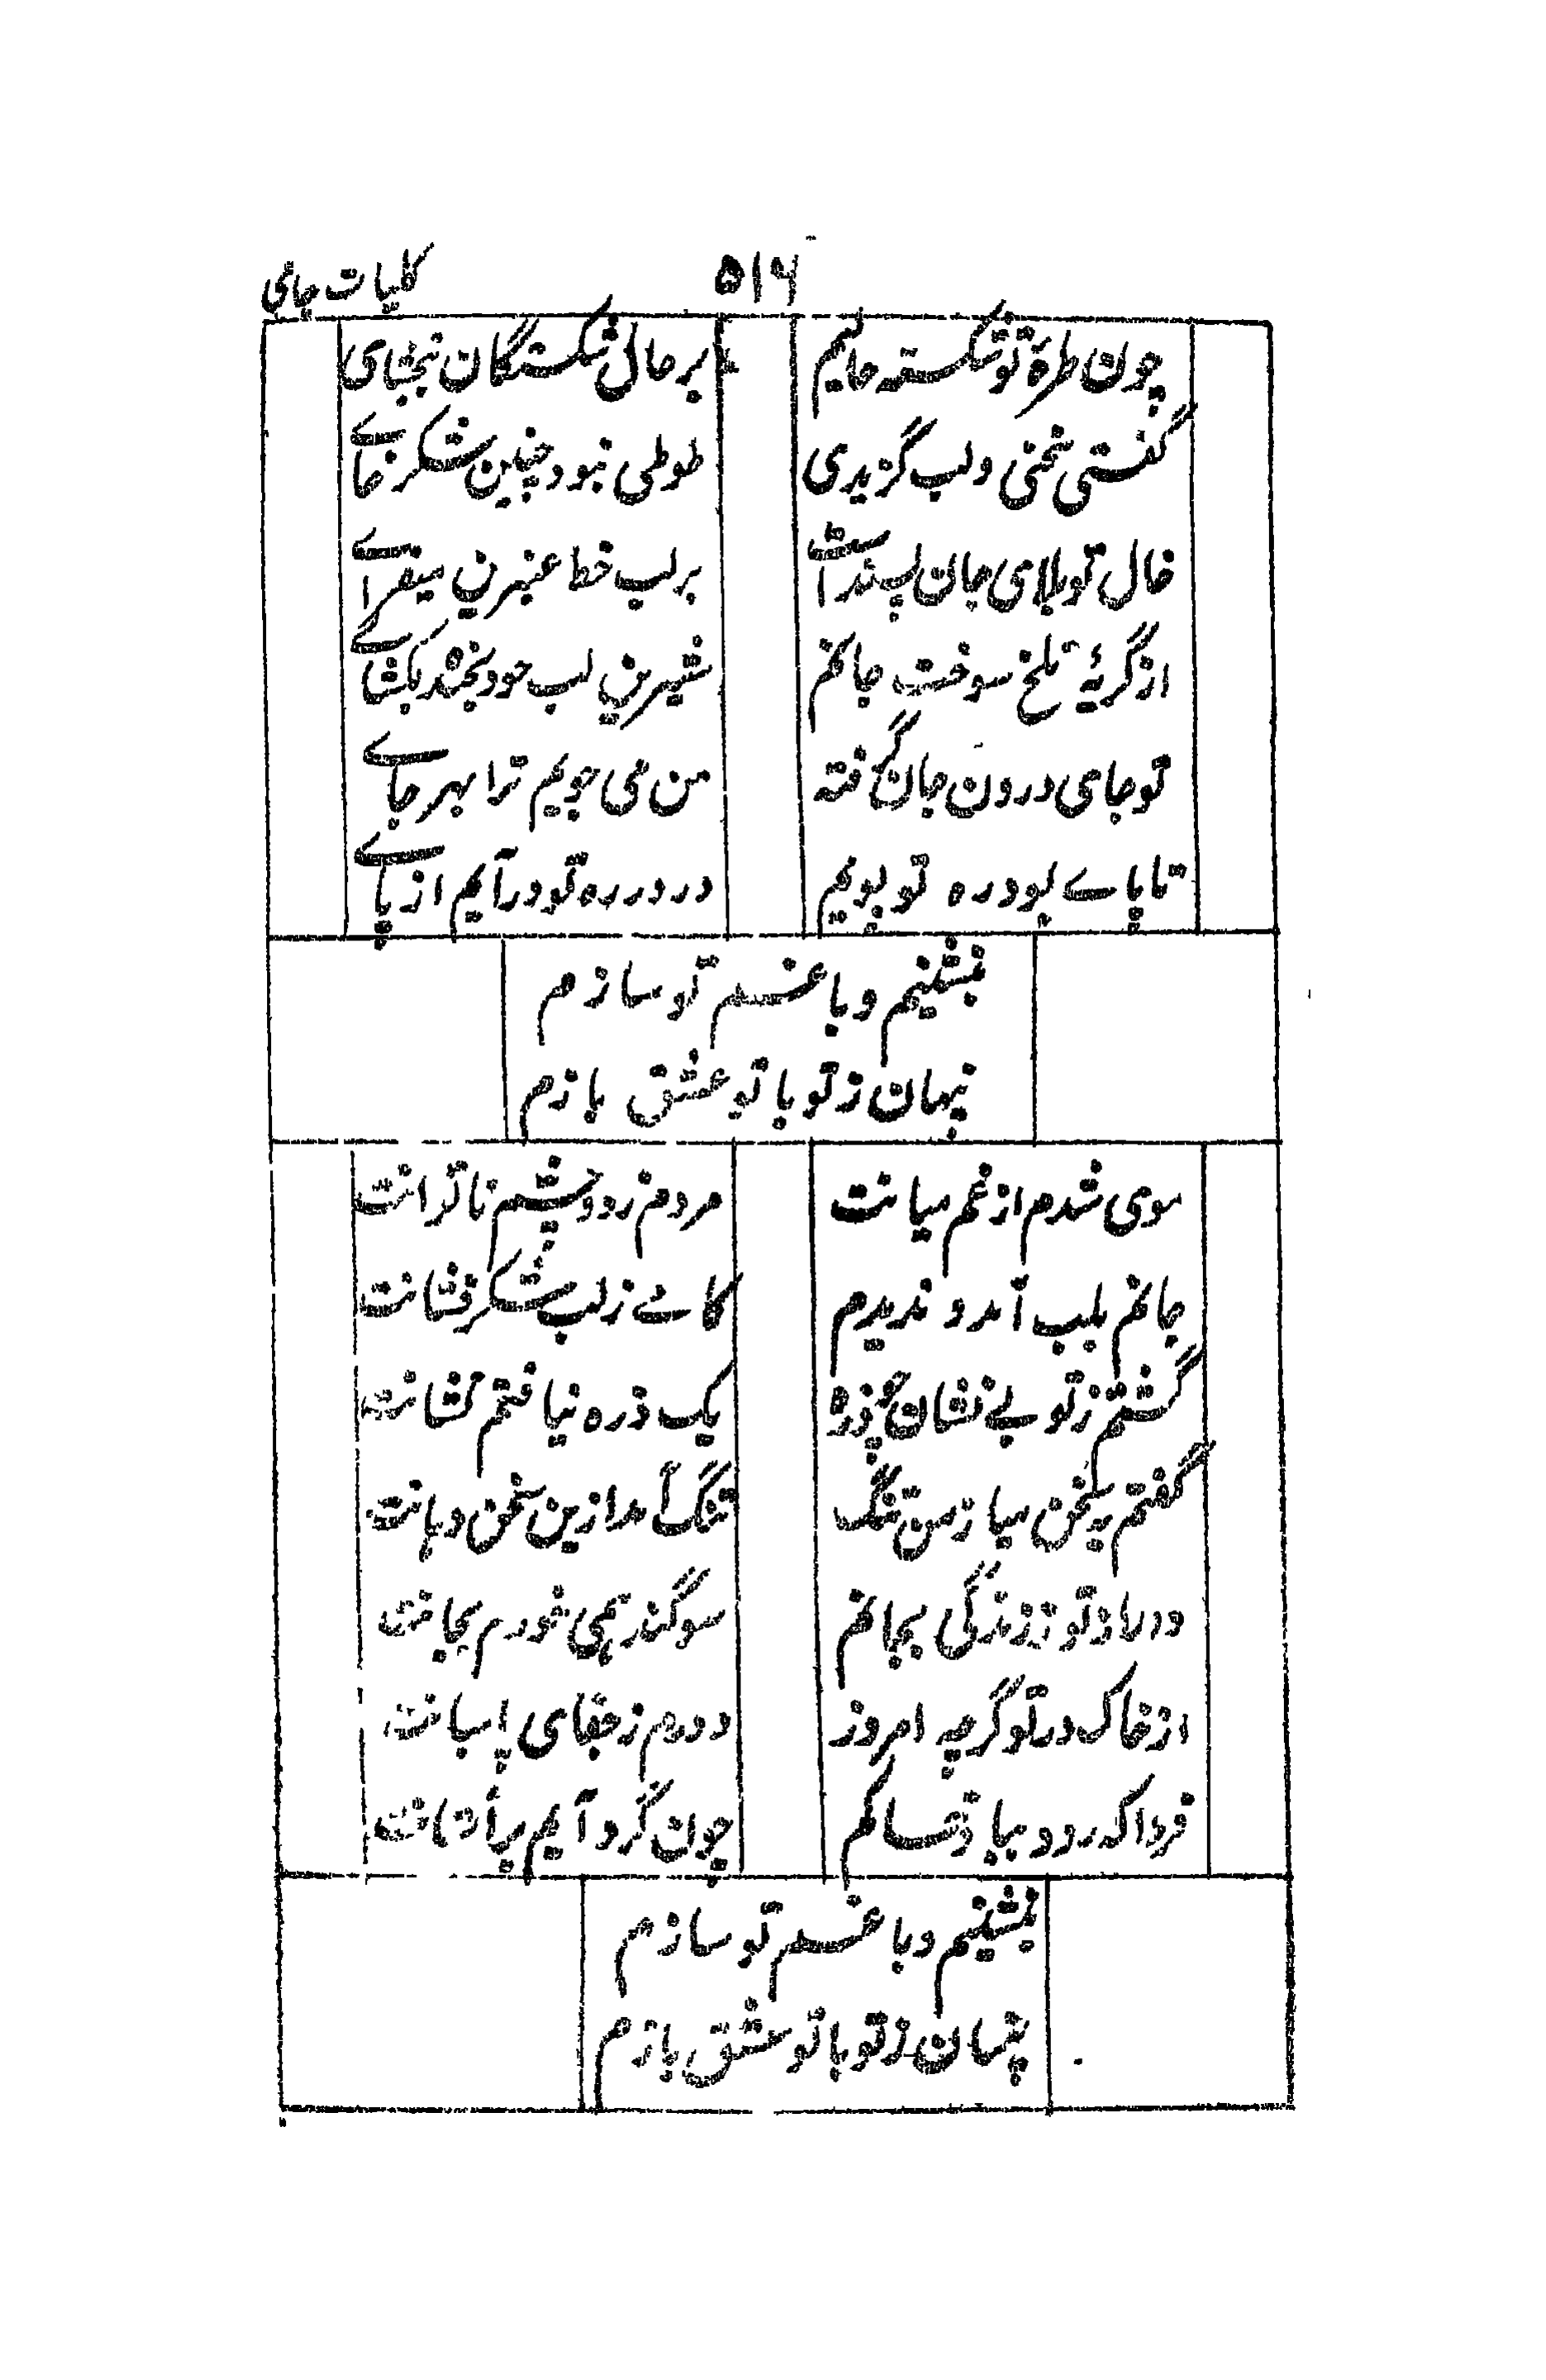 ۵۱۶ کلیات جامی
چون طرهٔ تو شکسته حالیم بر حال شکستگان نبخشای
گفتی سخنی و لب گزیدی طوطی نبود چنین شکر خای
خال تو بلای جان پسند است بر لب خط عنبرین میفزای
از گریهٔ تلخ سوخت جانم شیرین لب خود بخنده بکشای
تو جای درون جان گرفته من می جویم ترا بهر جای
تا پای بود ره تو پویم در در ره تو درآیم از پای
بنشینم و با غم تو سازم
پنهان ز تو با تو عشق بازم
موی شدم از غم میانت مردم ز دو چشم ناتوانت
جانم بلب آمد و ندیدم کامی ز لب شکر فشانت
گشتم ز تو بی نشان چو ذره یک ذره نیافتم نشانت
گفتم به سخن میا ز من تنگ تنگ آمد ازین سخن دهانت
دور از تو ز زندگی بجانم سوگند همی خورم بجانت
از خاک در تو گرچه امروز دورم ز جفای پاسبانت
فردا که رود بباد خاکم چون گرد آیم بر آستانت
بنشینم و با غم تو سازم
پنهان ز تو با تو عشق بازم